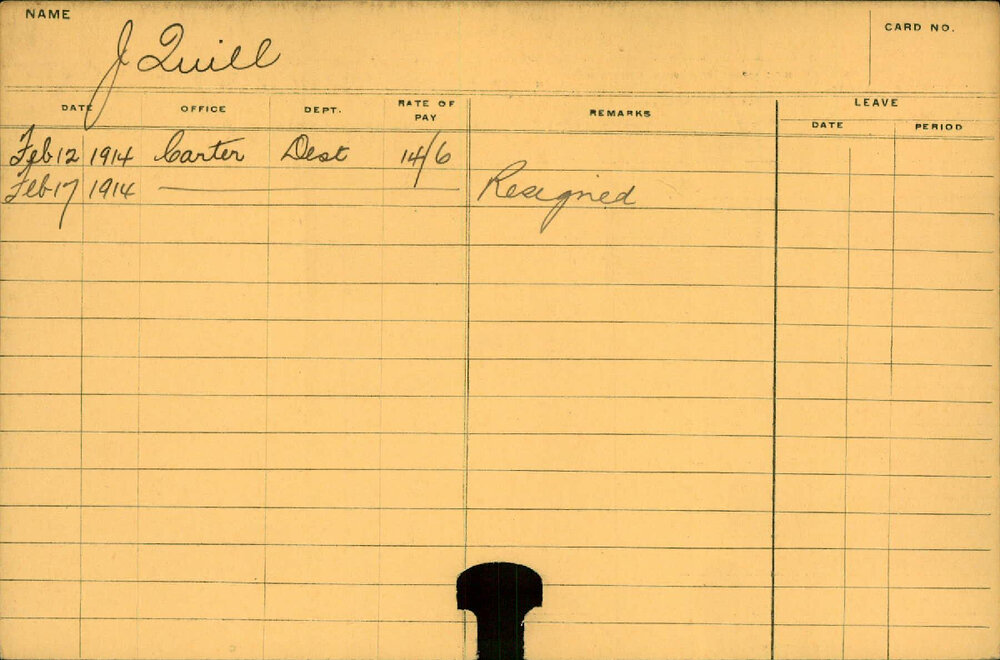 NAME
J Quill
CARD NO.
DATE OFFICE DEPT. RATE OF PAY REMARKS LEAVE
DATE PERIOD
Feb 12 1914 Carter Dest 14/6
Feb 17 1914 Resigned